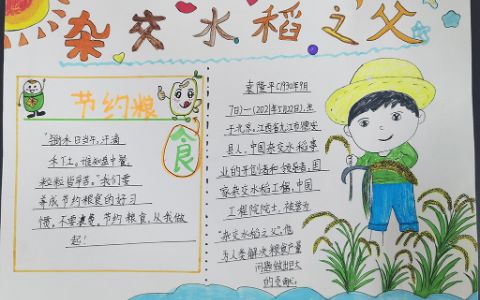 杂交水稻之父
节约粮
食
"锄禾日当午,汗滴
禾下土。谁知盘中餐,
粒粒皆辛苦。"我们要
养成节约粮食的好习
惯,不要浪费,节约粮食,从我做
起!
袁隆平(1930年9月
7日)—(2021年5月22日),生
于北京。江西省九江市德安
县人,中国杂交水稻事
业的开创者和领导者,国
家杂交水稻工程,中国
工程院院士,被誉为
"杂交水稻之父",他
为人类解决粮食产量
问题做出巨大
的贡献。